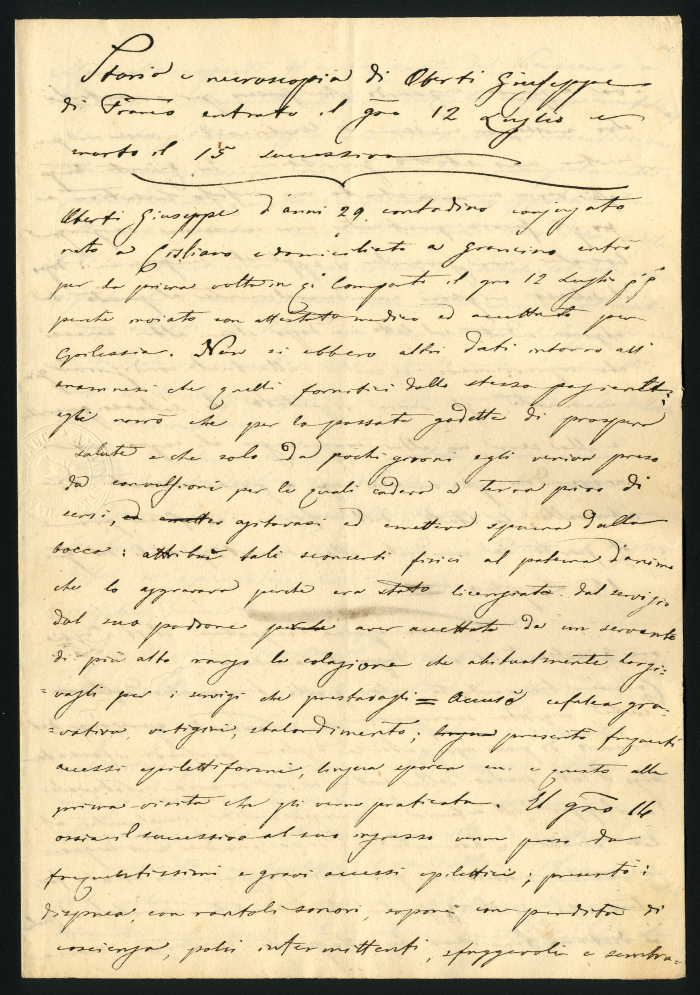 Storia e necroscopia di Oberti Giuseppe
di Franco entrato il gno 12 Luglio e
morto il 15 successivo
Oberti Giuseppe d'anni 29. contadino conjugato
nato a Cisliano e domiciliato a Grancino entrò
per la prima volta in Comparto il gno 12 Luglio pp
perchè inviato con attestato medico ed accettato per
Epilessia. Non si ebbero altri dati intorno all'
anamnesi che quelli fornitici dallo stesso paziente:
egli narrò che per lo passato godette di prospera
salute e che solo da pochi giorni egli veniva preso
da convulsioni per le quali cadeva a terra privo di
sensi, ed emetter agitavasi ed emetteva spuma dalla
bocca: attribuì tali sconcerti fisici al patema d'animo
che lo aggravava perchè era stato licenziato dal servizio
dal suo padrone perchè aver accettato da un servente
di più alto rango la colazione che abitualmente largi-
=vagli per i servigi che prestavagli = Accusò cefalea gra-
=vativa, vertigini, sbalordimento; lingua presentò frequenti
accessi epilettiformi, lingua sporca e questo alla
prima visita che gli venne praticata. Il gno 14
ossia il successivo al suo ingresso venne preso da
frequentissimi e gravi accessi epilettici; presentò:
dispnea, con rantoli sonori, sopore con perdita di
coscienza, polsi intermittenti, sfuggevoli e sembra-